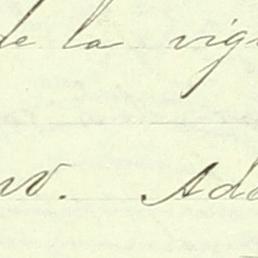 de la vig
w. Ad